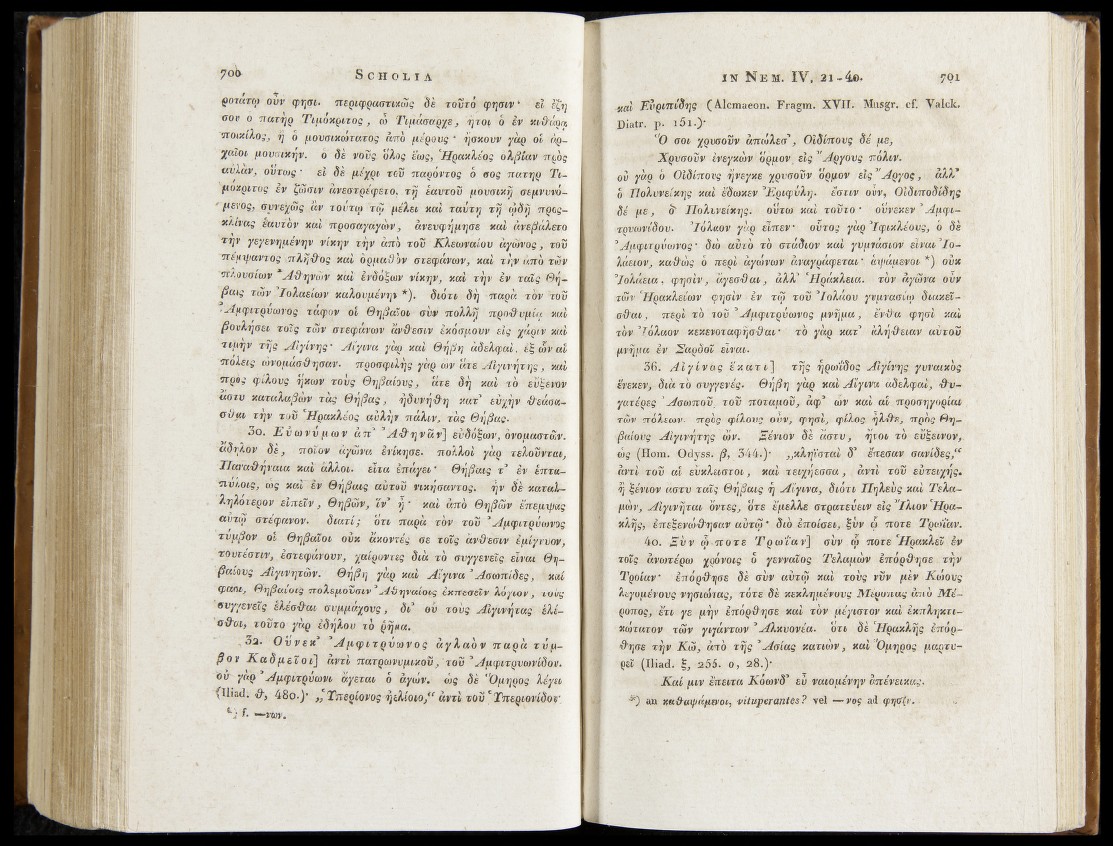 700 SCHOLIA
ροτάτῳ οὖν φησι. περιφραστικῶς δὲ τοῦτό φησιν· εἰ ἔζη
σοι ὁ πατὴρ Τιμόκριτος, ὦ Τιμάσαρχε, ἤτοι ὁ ἐν κιθάρᾳ
ποικίλος, ἢ ὁ μουσικώτατος ἀπὸ μέρους· ἤσκουν γὰρ οἱ ἀρ-
χαῖοι μουσικήν. ὁ δὲ νοῦς ὅλος ἕως, Ἡρακλέος ὀλβίαν πρὸς
αὐλὰν, οὕτως· εἰ δὲ μέχρι τοῦ παρόντος ὁ σος πατηρ Τι-
μόκριτος ἐν ζῶσιν ἀνεστρέφετο, τῇ ἑαυτοῦ μουσικῇ σεμνυνό-
μενος, συνεχῶς ἂν τούτῳ τῷ μέλει καὶ ταύτῃ τῇ ᾠδῇ προς-
κλίνας ἑαυτὸν καὶ προσαγαγὼν, ἀνευφήμησε καὶ ἀνεβάλετο
τὴν γεγενημένην νίκην τὴν ἀπὸ τοῦ Κλεωναίου ἀγῶνος, τοῦ
πέμψαντος πλῆθος καὶ ὁρμαθὸν στεφάνων, καὶ τὴν ἀπὸ τῶν
πλουσίων Ἀθηνῶν καὶ ἐνδόξων νίκην, καὶ τὴν ἐν ταῖς Θή-
βαις τῶν Ἰολαείων καλουμένην *). διότι δὴ παρὰ τὸν τοῦ
Ἀμφιτρύωνος τάφον οἱ Θηβαῖοι σὺν πολλῇ προθυμίᾳ καὶ
βουλήσει τοῖς τῶν στεφάνων ἄνθεσιν ἐκόσμουν εἰς χάριν καὶ
τιμὴν τῆς Αἰγίνης· Αἴγινα γὰρ καὶ Θήβη ἀδελφαί, ἐξ ὧν αἱ
πόλεις ὠνομάσθησαν. προσφιλὴς γὰρ ων ἅτε Αἰγινήτης, καὶ
πρὸς φίλους ἥκων τοὺς Θηβαίους, ἅτε δὴ καὶ τὸ εὔξενον
ἄστυ καταλαβὼν τὰς Θήβας, ἡδυνήθη κατ’ εὐχὴν θεάσα-
σθαι τὴν τοῦ Ἡρακλέος αὐλὴν πάλιν, τὰς Θήβας.
30. Εὐωνύμων ἀπ’ Ἀθηνᾶν] εὐδόξων, ὀνομαστῶν.
ἄδηλον δὲ, ποῖον ἀγῶνα ἐνίκησε. πολλοὶ γὰρ τελοῦνται,
Παναθήναια καὶ ἄλλοι. εἶτα ἐπάγει· Θήβαις τ’ ἐν ἑπτα-
πύλοις, ὡς καὶ ἐν Θήβαις αὐτοῦ νικήσαντος. ἦν δὲ καταλ-
ληλότερον εἰπεῖν, Θηβῶν, ἵν’ ᾖ· καὶ ἀπὸ Θηβῶν ἐπεμψας
αὐτῷ στέφανον. διατί; ὅτι παρὰ τὸν τοῦ Ἀμφιτρύωνος
τύμβον οἱ Θηβαῖοι οὐκ ἄκοντές σε τοῖς ἄνθεσιν ἐμίγνυον,
τουτέστιν, ἐστεφάνουν, χαίροντες διὰ τὸ συγγενεῖς εἶναι Θη-
βαίους Αἰγινητῶν. Θήβη γὰρ καὶ Αἴγινα Ἀσωπίδες, καί
φασι, Θηβαίοις πολεμοῦσιν Ἀθηναίοις ἐκπεσεῖν λόγιον, τοὺς
συγγενεῖς ἑλέσθαι συμμάχους, δι’ οὗ τοὺς Αἰγινήτας ἑλέ-
σθαι, τοῦτο γὰρ ἐδήλου τὸ ῥῆμα.
32. Οὕνεκ’ Ἀμφιτρύωνος ἀγλαὸν παρὰ τύμ-
βον Καδμεῖοι] ἀντὶ πατρωνυμικοῦ, τοῦ Ἀμφιτρυωνίδου.
οὐ γὰρ Ἀμφιτρύωνι ἄγεται ὁ ἀγών. ὡς δὲ Ὅμηρος λέγει
(Iliad. θ, 480.)· „Ὑπερίονος ἠελίοιο,“ ἀντὶ τοῦ Ὑπεριονίδου
*) f. —νων.
IN NEM. IV, 21-40. 701
καὶ Εὐριπίδης (Alcmaeon. Fragm. XVII. Musgr. cf. Valck.
Diatr. p. 151.)·
Ὁ σοι χρυσοῦν ἀπώλεσ’, Οἰδίπους δέ με,
Χρυσοῦν ἐνεγκὼν ὅρμον εἰς Ἄργους πόλιν.
οὐ γὰρ ὁ Οἰδίπους ἤνεγκε χρυσοῦν ὅρμον εἰς Ἄργος, ἀλλ’
ὁ Πολυνείκης καὶ ἔδωκεν Ἐριφύλῃ. ἔστιν οὖν, Οἰδιποδίδης
δέ με, ὁ Πολυνείκης. οὕτω καὶ τοῦτο· οὕνεκεν Ἀμφι-
τρυωνίδου. Ἰόλαον γὰρ εἶπεν· οὗτος γὰρ Ἰφικλέους, ὁ δὲ
Ἀμφιτρύωνος· διὸ αὐτὸ τὸ στάδιον καὶ γυμνάσιον εἶναι Ἰο-
λάειον, καθὼς ὁ περὶ ἀγώνων ἀναγράφεται· ἁψάμενοι *) οὐκ
Ἰολάεια, φησὶν, ἄγεσθαι, ἀλλ’ Ἡράκλεια. τὸν ἀγῶνα οὖν
τῶν Ἡρακλείων φησὶν ἐν τῷ τοῦ Ἰολάου γυμνασίῳ διακεῖ-
σθαι, περὶ τὸ τοῦ Ἀμφιτρύωνος μνῆμα, ἔνθα φησὶ καὶ
τὸν Ἰόλαον κεκενοταφῆσθαι· τὸ γὰρ κατ’ ἀλήθειαν αὐτοῦ
μνῆμα ἐν Σαρδοῖ εἶναι.
36. Αἰγίνας ἕκατι] τῆς ἡρωΐδος Αἰγίνης γυναικὸς
ἕνεκεν, διὰ τὸ συγγενές. Θήβη γὰρ καὶ Αἴγινα ἀδελφαὶ, θυ-
γατέρες Ἀσωποῦ τοῦ ποταμοῦ, ἀφ’ ὧν καὶ αἱ προσηγορίαι
τῶν πόλεων. πρὸς φίλους οὖν, φησὶ, φίλος ἦλθε, πρὸς Θη-
βαίους Αἰγινήτης ὤν. Ξένιον δὲ ἄστυ, ἤτοι τὸ εὔξεινον,
ὡς (Hom. Odyss. β, 344.)· „κληῖσταὶ δ’ ἔπεσαν σανίδες,“
ἀντὶ τοῦ αἱ εὔκλειστοι, καὶ τειχήεσσα, ἀντὶ τοῦ εὐτειχής.
ἢ ξένιον αστυ ταῖς Θήβαις ἡ Αἴγινα, διότι Πηλεὺς καὶ Τελα-
μὼν, Αἰγινῆται ὄντες, ὅτε ἔμελλε στρατεύειν εἰς Ἴλιον Ἡρα-
κλῆς, ἐπεξενώθησαν αὐτῷ· διὸ ἐποίσει, ξὺν ᾧ ποτε Τρωΐαν.
40. Σὺν ᾧ ποτε Τρωΐαν] σὺν ᾧ ποτε Ἡρακλεῖ ἐν
τοῖς ἀνωτέρω χρόνοις ὁ γενναῖος Τελαμὼν ἐπόρθησε τὴν
Τροίαν· ἐπόρθησε δὲ σὺν αὐτῷ καὶ τοὺς νῦν μὲν Κώους
λεγομένους νησιώτας, τότε δὲ κεκλημένους Μέροπας ἀπὸ Μέ-
ροπος, ἔτι γε μὴν ἐπόρθησε καὶ τὸν μέγιστον καὶ ἐκπληκτι-
κώτατον τῶν γιγάντων Ἀλκυονέα. ὅτι δὲ Ἡρακλῆς ἐπόρ-
θησε τὴν Κῶ, ἀπὸ τῆς Ἀσίας κατιὼν, καὶ Ὅμηρος μαρτυ-
ρεῖ (Iliad. ξ, 255. ο, 28.)·
Καί μιν ἔπειτα Κόωνδ’ εὖ ναιομένην ἀπένεικας.
*) an καθαψάμενοι, vituperantes? vel —νος ad φησίν.